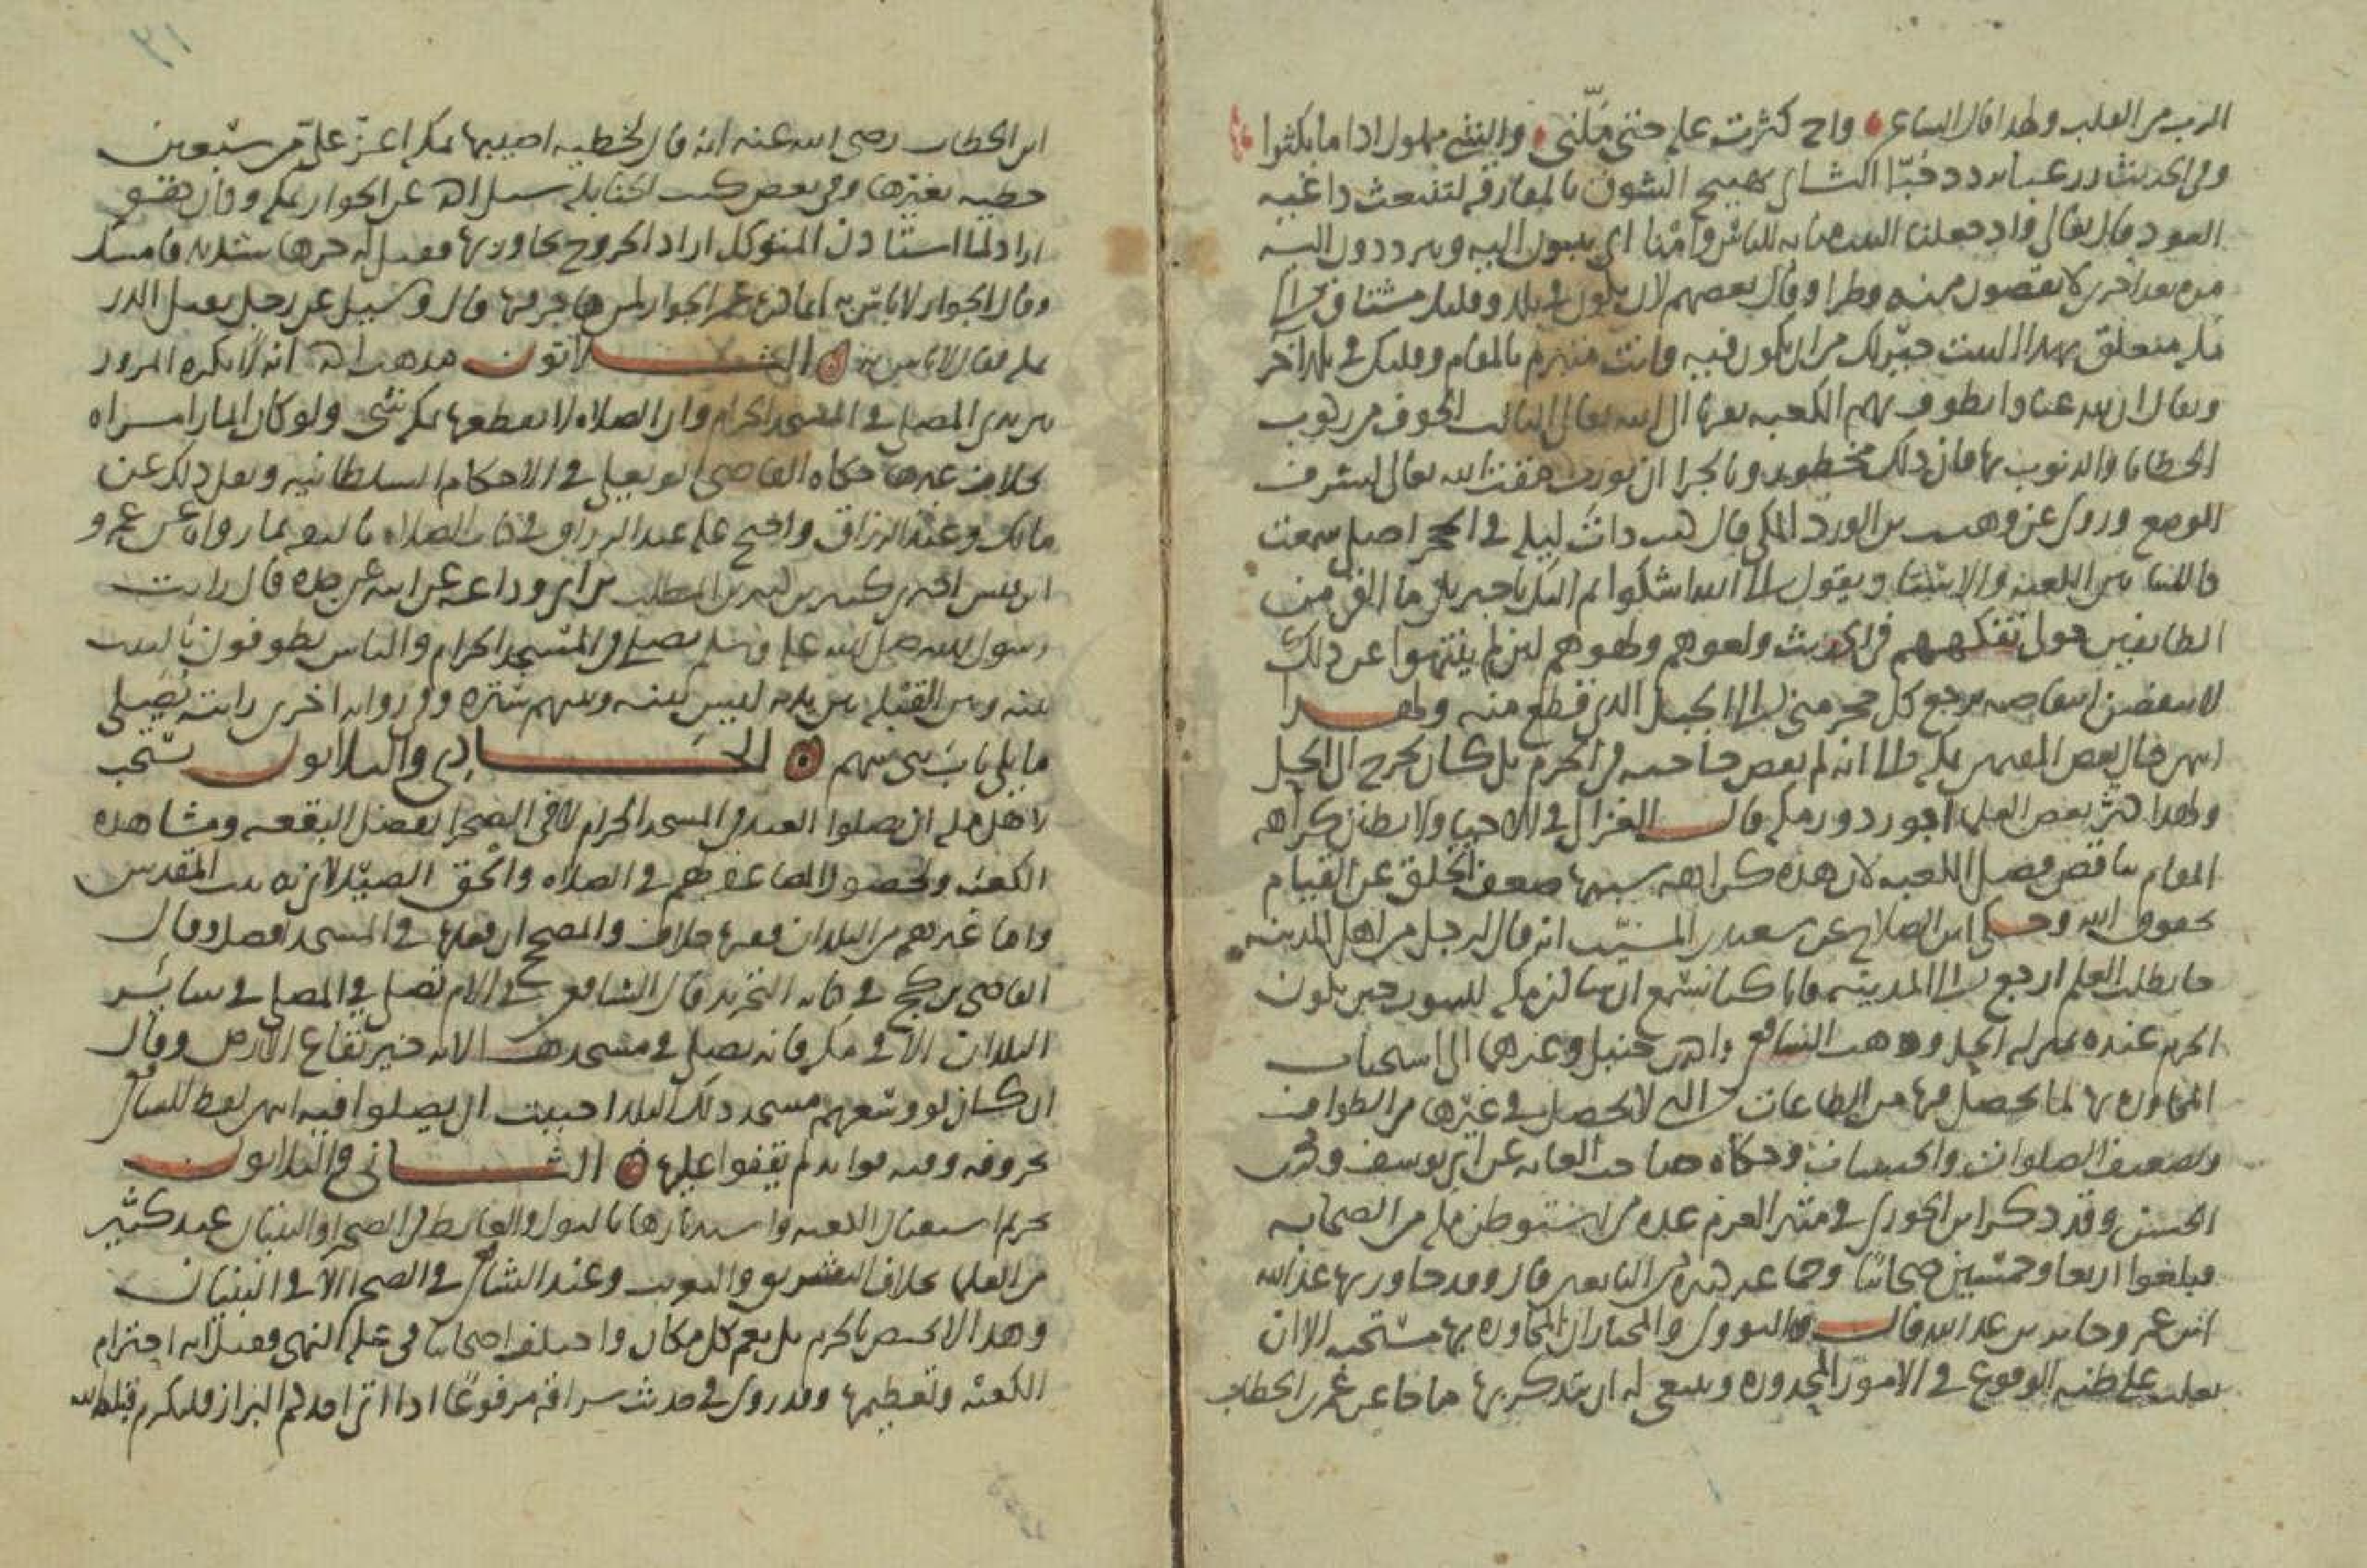 الذنب من القلب ولهذا قال الشاعر واخ كثرت عليه حتى ملني والشي مملول اذا ما يكثرا
وفي الحديث زر غبا تزدد حبا الثاني تهييج الشوق بالمفارقة لتنبعث داعية
العود قال تعالى واذ جعلنا البيت مثابة للناس وامنا اي يثوبون اليه ويترددون اليه
مرة بعد اخرى لا يقضون منه وطرا وقال بعضهم لان تكون في بلد وقلبك مشتاق الى
مكة متعلق بهذا البيت خير لك من ان تكون فيه وانت متبرم بالمقام وقلبك في بلد اخر
ويقال ان لله عبادا تطوف بهم الكعبة تقربا الى الله تعالى الثالث الخوف من ركوب
الخطايا والذنوب بها فان ذلك محظور وبالحرا ان يورث مقت الله تعالى لشرف
الموضع وروى عن وهيب بن الورد المكي قال كنت ذات ليلة في الحجر اصلي سمعت
كلاما بين الكعبة والاستار ويقول الى الله اشكوا ثم اليك يا جبريل ما القى من
الطائفين حولي تفكههم في الحديث ولغوهم ولهوهم لئن لم ينتهوا عن ذلك
لانتفضن انتفاضة يرجع كل حجر مني الى الجبل الذي قطع منه ولهذا
انتهى بعض المقيمين بمكة الى انه لم يقض حاجته في الحرم بل كان يخرج الى الحل
ولهذا كره بعض العلما اجور دور مكة قال الغزالي في الاحيا ولا تظنن كراهة
المقام يناقض فضل الكعبة لان هذه كراهة سببها ضعف الخلق عن القيام
بحقوق الله وحكى ابن الصلاح عن سعيد بن المسيب انه قال لرجل من اهل المدينة
جا يطلب العلم ارجع الى المدينة فانا كنا نسمع ان ساكن مكة لا يموت حتى يكون
الحرم عنده بمنزلة الحل وذهب الشافعي واحمد بن حنبل وغيرهما الى استحباب
المجاورة بها لما يحصل فيها من الطاعات التي لا تحصل في غيرها من الطواف
وتضعيف الصلوات والحسنات وحكاه صاحب الغاية عن ابي يوسف ومحمد بن
الحسن وقد ذكر ابن الجوزي في مثير العزم عدة من استوطن مكة من الصحابة
فبلغوا اربعا وخمسين صحابيا وجماعة كثيرة من التابعين قال وقد جاور بها عبد الله
ابن عمر وجابر بن عبد الله قال النووي والمختار ان المجاورة بها مستحبة الا ان
يغلب على ظنه الوقوع في الامور المحذورة وينبغي له ان يتذكر بها ما جا عن عمر بن الخطاب
ابن الخطاب رضي الله عنه انه قال لخطية اصيبها بمكة اعز علي من سبعين
خطية بغيرها وفي بعض كتب الحنابلة سئل احمد عن الجوار بمكة وقال
وقال الجوار لا باس به انما كره عمر الجوار لمن هاجر منها قال وسئل عن رجل
بمكة فقال لا باس به الثلاثون مذهب احمد انه لا يكره المرور
بين يدي المصلي في المسجد الحرام وان الصلاة لا يقطعها بمكة شي ولو كان المار امراة
بخلاف غيرها حكاه القاضي ابو يعلى في الاحكام السلطانية ونقل ذلك عن
مالك وعبد الرزاق واحتج عليه عبد الرزاق في كتاب الصلاة بما رواه عن عمرو
ابن قيس اخبرني كثير بن كثير بن المطلب بن ابي وداعة عن ابيه عن جده قال رايت
رسول الله صلى الله عليه وسلم يصلي في المسجد الحرام والناس يطوفون بالبيت
بينه وبين القبلة بين يديه ليس بينه وبينهم سترة وفي رواية اخرى رايته يصلي
مما يلي باب بني سهم الحادي والثلاثون يستحب
لاهل مكة ان يصلوا العيد في المسجد الحرام لا في الصحرا لفضل البقعة ومشاهدة
الكعبة والحق الصيدلاني به بيت المقدس
واما غيرهم من البلدان ففيها خلاف والصحيح ان فعلها في المسجد افضل وقال
القاضي بن كج في كتابه التجريد قال الشافعي في الام يصلي في المصلى في سائر
البلدان الا في مكة فانه يصلي في مسجدها لانه خير بقاع الارض وقال
ان كان لو وسعهم مسجد ذلك البلد احببت ان يصلوا فيه انتهى لفظ الشافعي
بحروفه وفيه فوايد لم يقفوا عليها الثاني والثلاثون
تحريم استقبال الكعبة واستدبارها بالبول والغائط في الصحرا والبنيان عند كثير
من العلما بخلاف التشريق والتغريب وعند الشافعي في الصحرا لا في البنيان
وهذا لا يختص بالحرم بل يعم كل مكان واختلف اصحابنا في علة النهي فقيل انه احترام
الكعبة وتعظيمها وقد روى في حديث سراقة مرفوعا اذا اتى احدكم البراز فليكرم قبلة الله